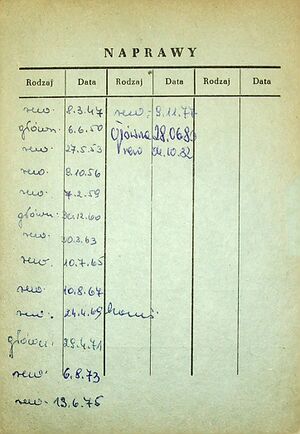 NAPRAWY
Rodzaj Data Rodzaj Data Rodzaj Data
rew. 8.3.47 rew. 9.11.77
główn. 6.6.50 Główna 28.06.80
rew. 27.5.53 rew 04.10.82
rew. 9.10.56
rew. 7.2.59
główn. 30.12.60
rew. 20.2.63
rew. 10.7.65
rew. 10.8.67
rew. 24.4.69
główn. 29.4.71
rew. 6.8.73
rew. 19.6.75